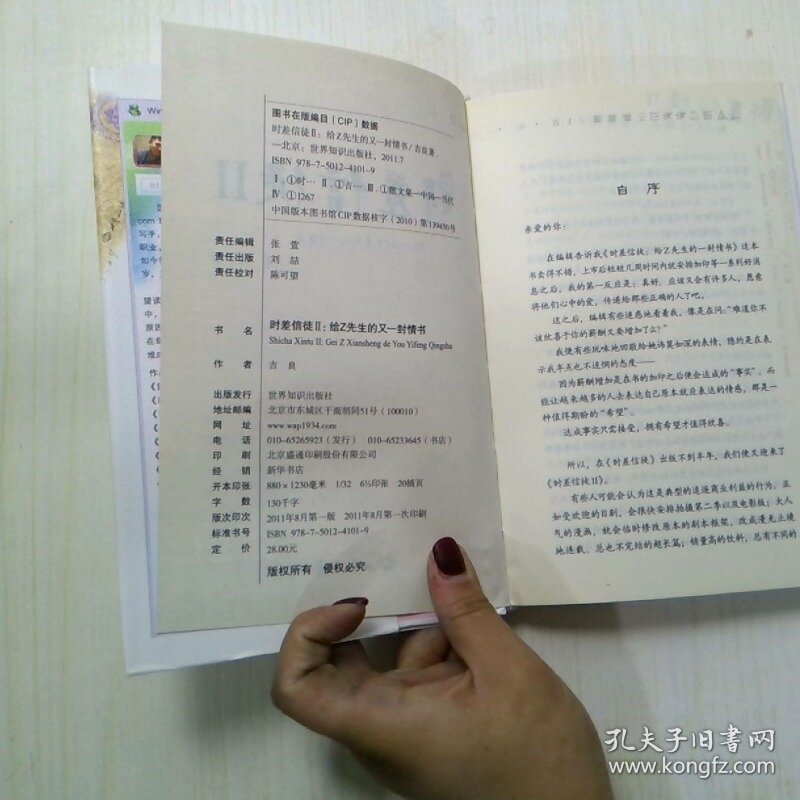 图书在版编目(CIP)数据
时差信徒Ⅱ:给Z先生的又一封情书/吉良著.
—北京:世界知识出版社,2011.7
ISBN 978-7-5012-4101-9
Ⅰ.①时… Ⅱ.①吉… Ⅲ.①散文集—中国—当代
Ⅳ.①I267
中国版本图书馆CIP数据核字(2010)第139450号
责任编辑 张萱
责任出版 刘喆
责任校对 陈可望
书 名 时差信徒Ⅱ:给Z先生的又一封情书
Shicha Xintu II: Gei Z Xiansheng de You Yifeng Qingshu
作 者 吉 良
出版发行 世界知识出版社
地址邮编 北京市东城区干面胡同51号(100010)
网 址 www.wap1934.com
电 话 010-65265923(发行) 010-65233645(书店)
印 刷 北京盛通印刷股份有限公司
经 销 新华书店
开本印张 880×1230毫米 1/32 6½印张 20插页
字 数 130千字
版次印次 2011年8月第一版 2011年8月第一次印刷
标准书号 ISBN 978-7-5012-4101-9
定 价 28.00元
版权所有 侵权必究
自 序
亲爱的你:
在编辑告诉我《时差信徒:给Z先生的一封情书》这本
书卖得不错,上市后短短几周时间内就安排加印等一系列好消
息之后,我的第一反应是:真好,应该又会有许多人,愿意
将他们心中的爱,传递给那些正确的人了吧。
这之后,编辑有些迷惑地看着我,像是在问:“难道你不
该欣喜于你的薪酬又要增加了么?”
我便有些玩味地回敬给她讳莫如深的表情,隐约是在表
示我年少也不迷惘的态度——
因为薪酬增加是在书的加印之后便会达成的“事实”。而
能让越来越多的人去表达自己原本就应表达的情感,那是一
种值得期盼的“希望”。
达成事实只需接受,拥有希望才值得欣喜。
所以,在《时差信徒》出版不到半年,我们便又迎来了
《时差信徒II》。
有些人可能会认为这是典型的追逐商业利益的行为。正
如受欢迎的日剧,会很快安排拍摄第二季以及电影版;大人
气的漫画,就会临时修改原本的剧本框架,改成漫无止境
地连载、总也不完结的超长篇;销量高的饮料,总有不同的
孔夫子旧书网
www.kongfz.com